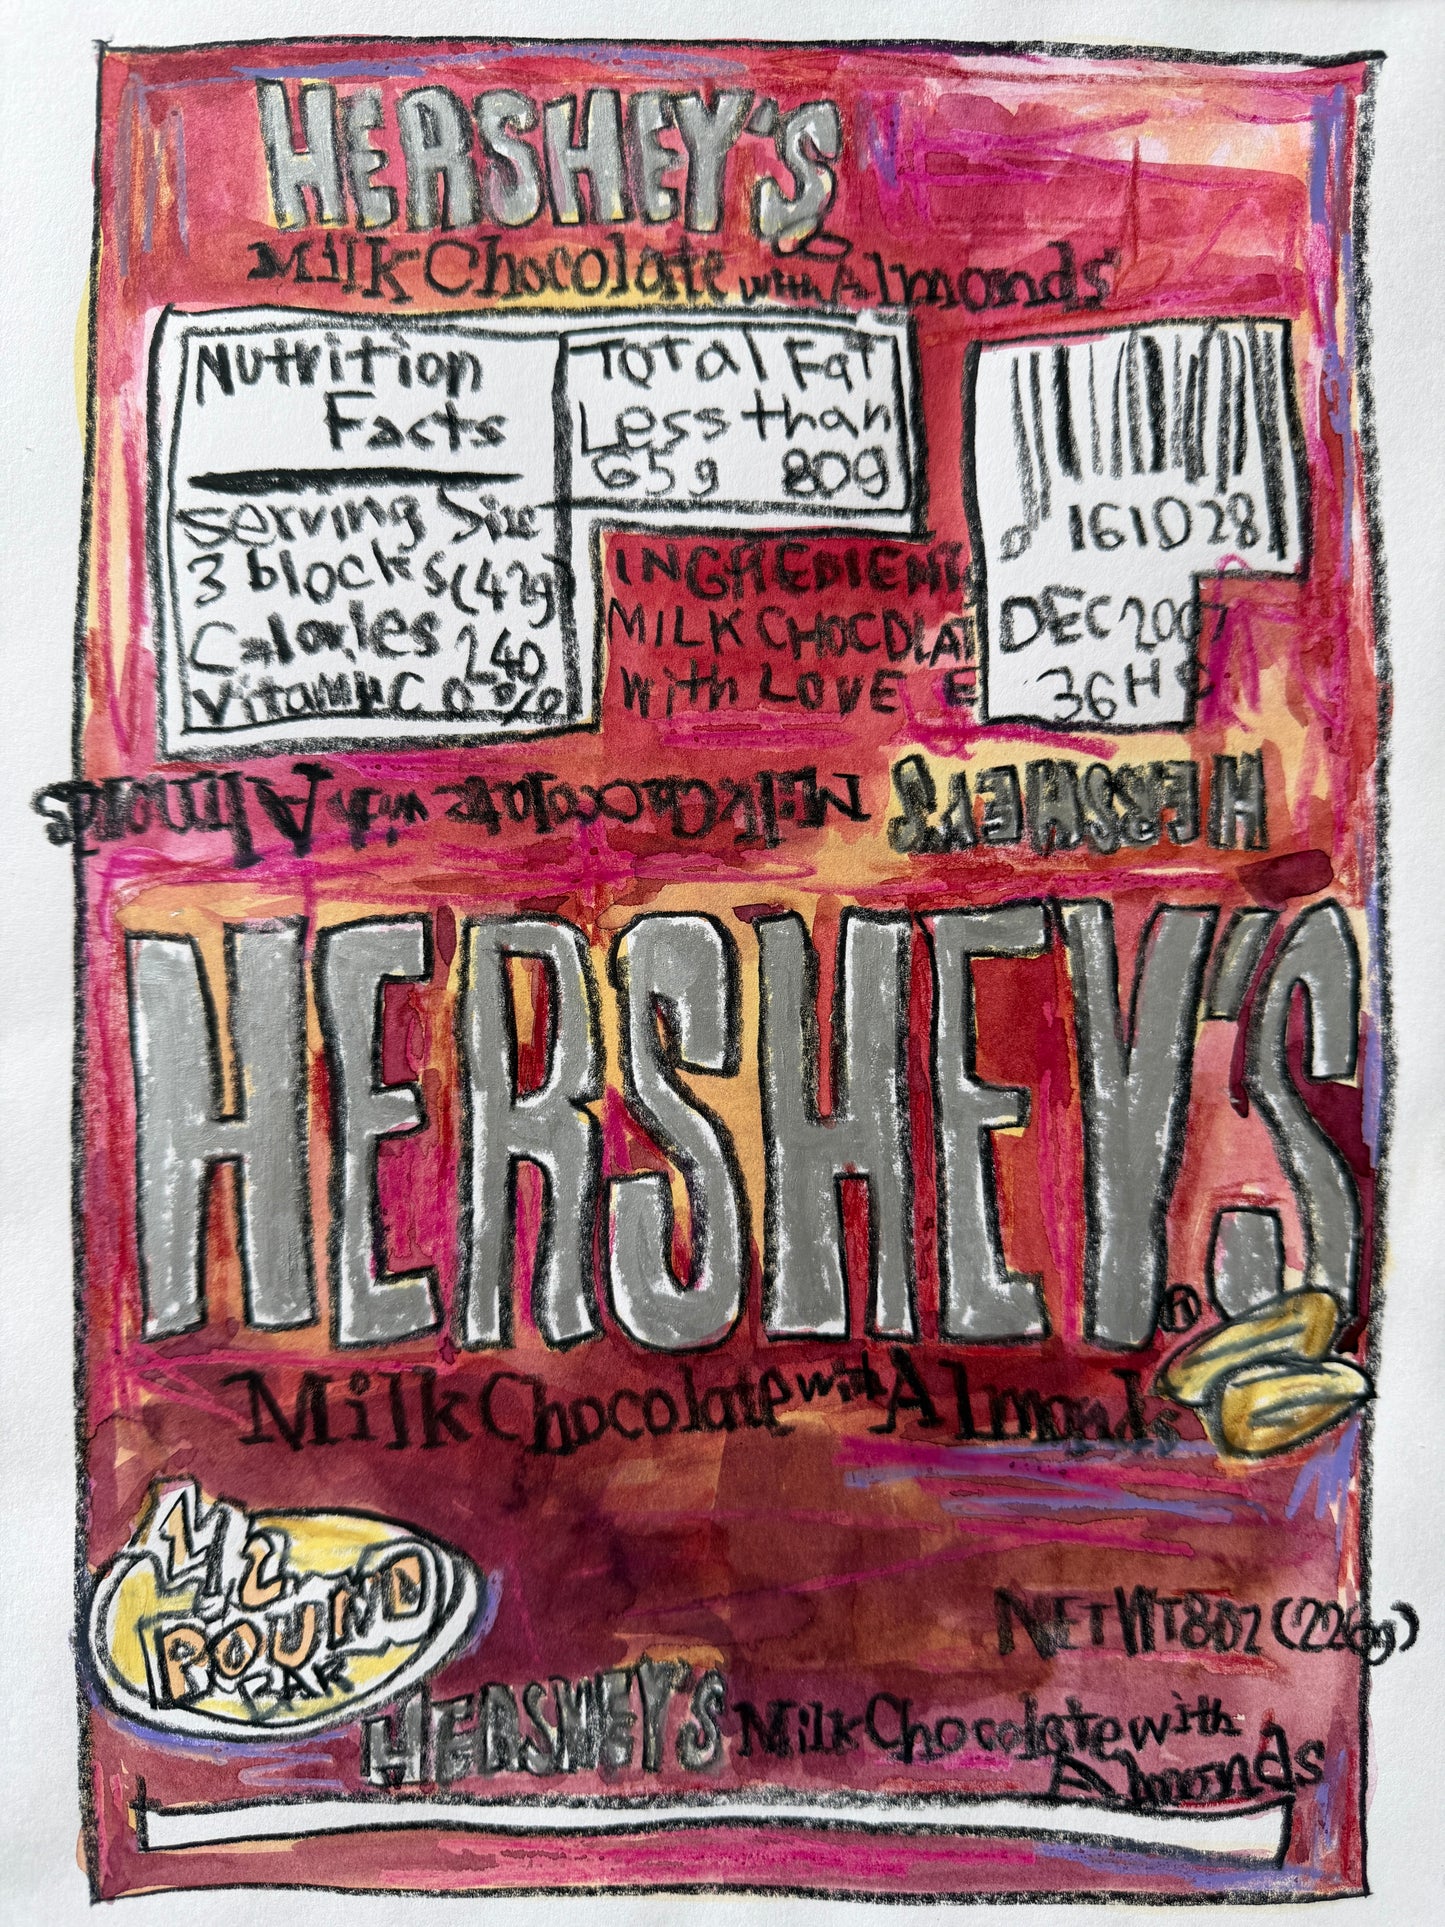 HERSHEY'S
Milk Chocolate with Almonds
Nutrition
Facts
Serving Size
3 blocks (42g)
Calories 240
Vitamin C 0%
Total Fat
Less than
65g 80g
INGREDIENT
MILK CHOCOLAT
with LOVE E
0 161028
DEC 2007
36H
HERSHEY'S Milk Chocolate with Almonds
HERSHEY'S
®
Milk Chocolate with Almonds
1/2
POUND
BAR
NET WT 8 OZ (226g)
HERSHEY'S Milk Chocolate with
Almonds